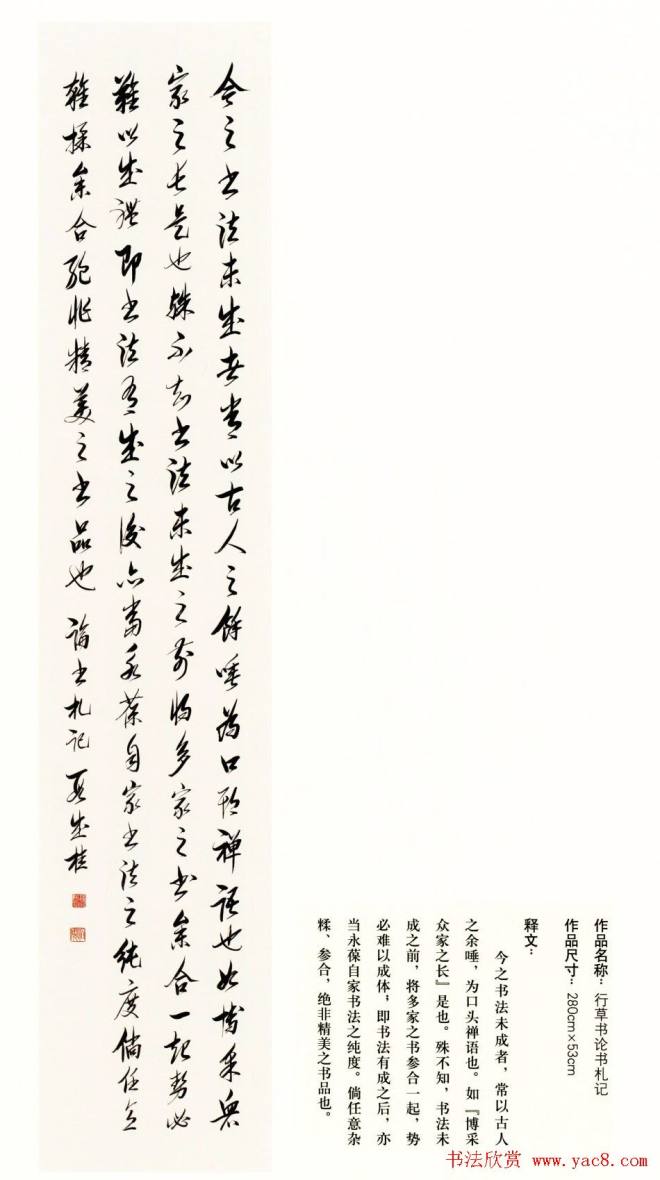 今之書法未成者常以古人之餘唾為口頭禪語也如博采眾
家之長是也殊不知書法未成之前將多家之書參合一起勢必
難以成體即書法有成之後亦當永葆自家書法之純度倘任意
雜揉參合絕非精美之書品也 論書札記 成桂
作品名称：行草书论书札记
作品尺寸：280cm×53cm
释文：
今之书法未成者，常以古人
之余唾，为口头禅语也。如『博采
众家之长』是也。殊不知，书法未
成之前，将多家之书参合一起，势
必难以成体；即书法有成之后，亦
当永葆自家书法之纯度。倘任意杂
糅、参合，绝非精美之书品也。
书法欣赏 www.yac8.com